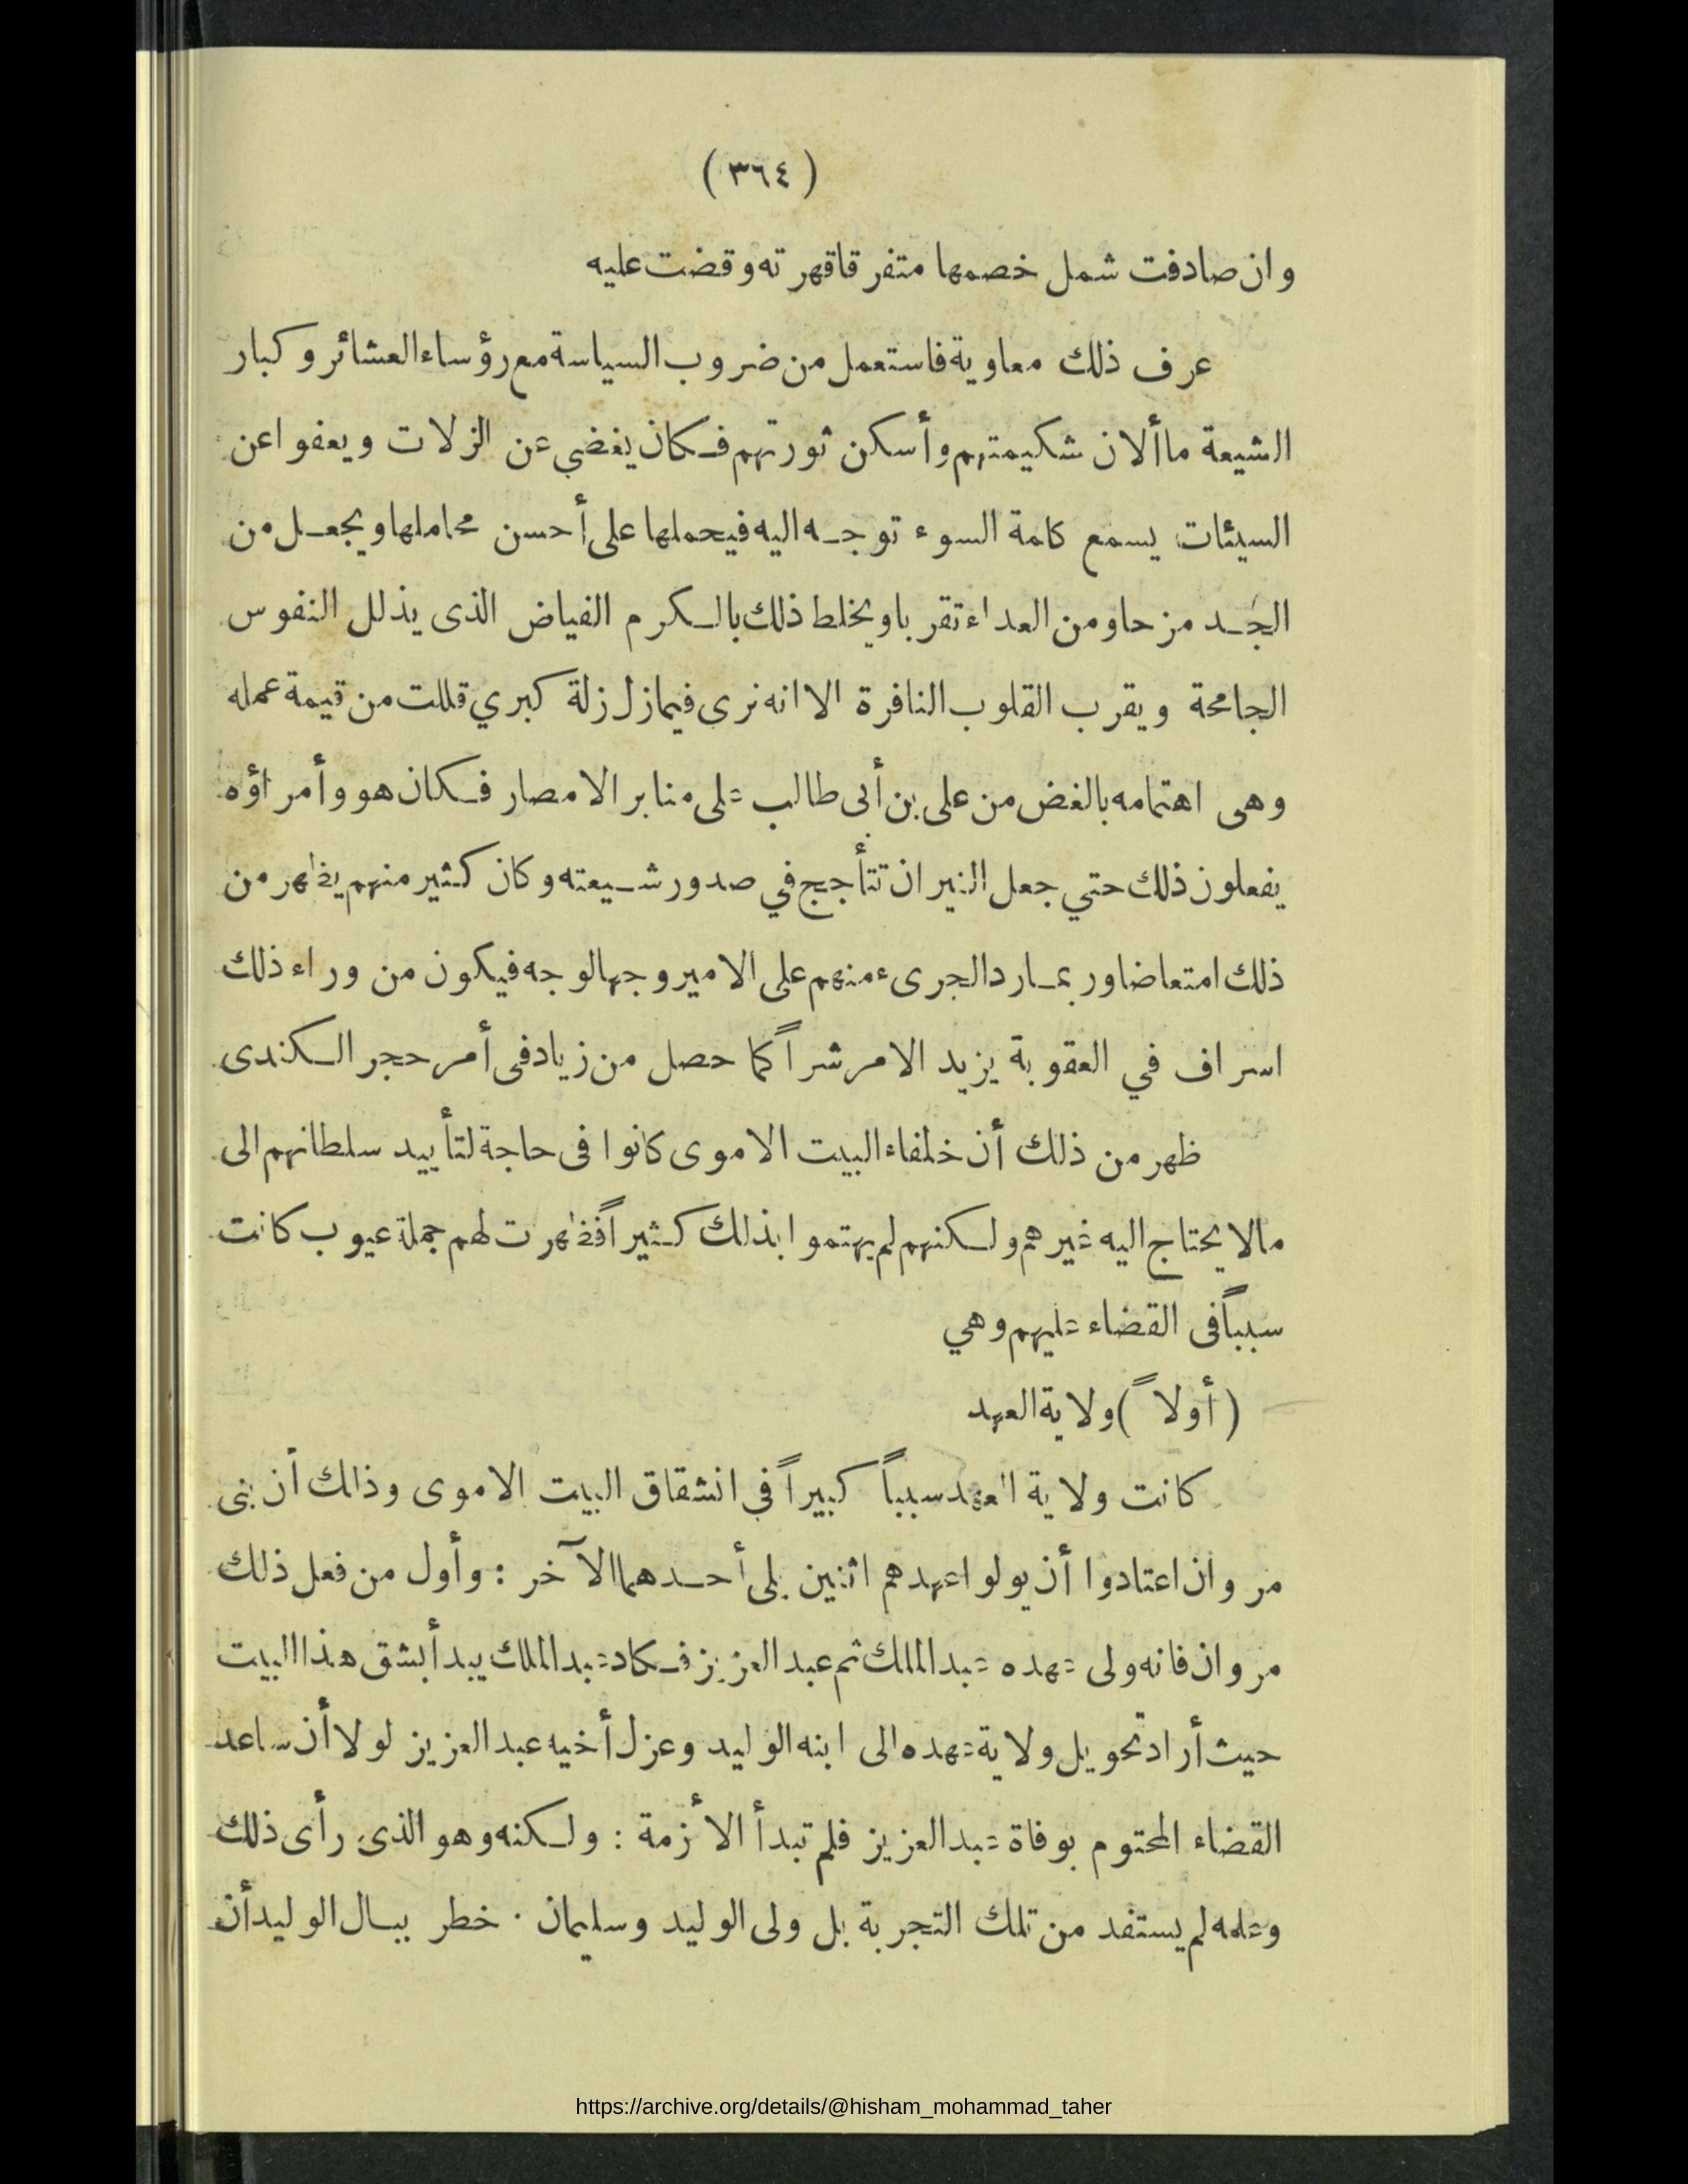 ( ٣٦٤ )
وان صادفت شمل خصمها متفرقا قهرته وقضت عليه
عرف ذلك معاوية فاستعمل من ضروب السياسة مع رؤساء العشائر وكبار
الشيعة ما ألان شكيمتهم وأسكن ثورتهم فكان يغضي عن الزلات ويعفوا عن
السيئات يسمع كلمة السوء توجه اليه فيحملها على أحسن محاملها ويجعل من
الجد مزحا ومن العداء تقربا ويخلط ذلك بالكرم الفياض الذى يذلل النفوس
الجامحة ويقرب القلوب النافرة الا انه نرى فيما زل زلة كبري قللت من قيمة عمله
وهى اهتمامه بالغض من على بن أبى طالب على منابر الامصار فكان هو وأمراؤه
يفعلون ذلك حتي جعل النيران تتأجج في صدور شيعته وكان كثير منهم يظهر من
ذلك امتعاضا وربما رد الجرىء منهم على الامير وجها لوجه فيكون من وراء ذلك
اسراف في العقوبة يزيد الامر شراً كما حصل من زياد فى أمر حجر الكندى
ظهر من ذلك أن خلفاء البيت الاموى كانوا فى حاجة لتأييد سلطانهم الى
مالا يحتاج اليه غيرهم ولكنهم لم يهتموا بذلك كثيراً فظهرت لهم جملة عيوب كانت
سبباً فى القضاء عليهم وهي
( أولاً ) ولاية العهد
كانت ولاية العهد سبباً كبيراً فى انشقاق البيت الاموى وذلك أن بنى
مروان اعتادوا أن يولوا عهدهم اثنين يلى أحدهما الآخر : وأول من فعل ذلك
مروان فانه ولى عهده عبد الملك ثم عبد العزيز فكاد عبد الملك يبدأ بشق هذا البيت
حيث أراد تحويل ولاية عهده الى ابنه الوليد وعزل أخيه عبد العزيز لولا أن ساعد
القضاء المحتوم بوفاة عبد العزيز فلم تبدأ الأزمة : ولكنه وهو الذى رأى ذلك
وعلمه لم يستفد من تلك التجربة بل ولى الوليد وسليمان . خطر ببال الوليد أن
https://archive.org/details/@hisham_mohammad_taher